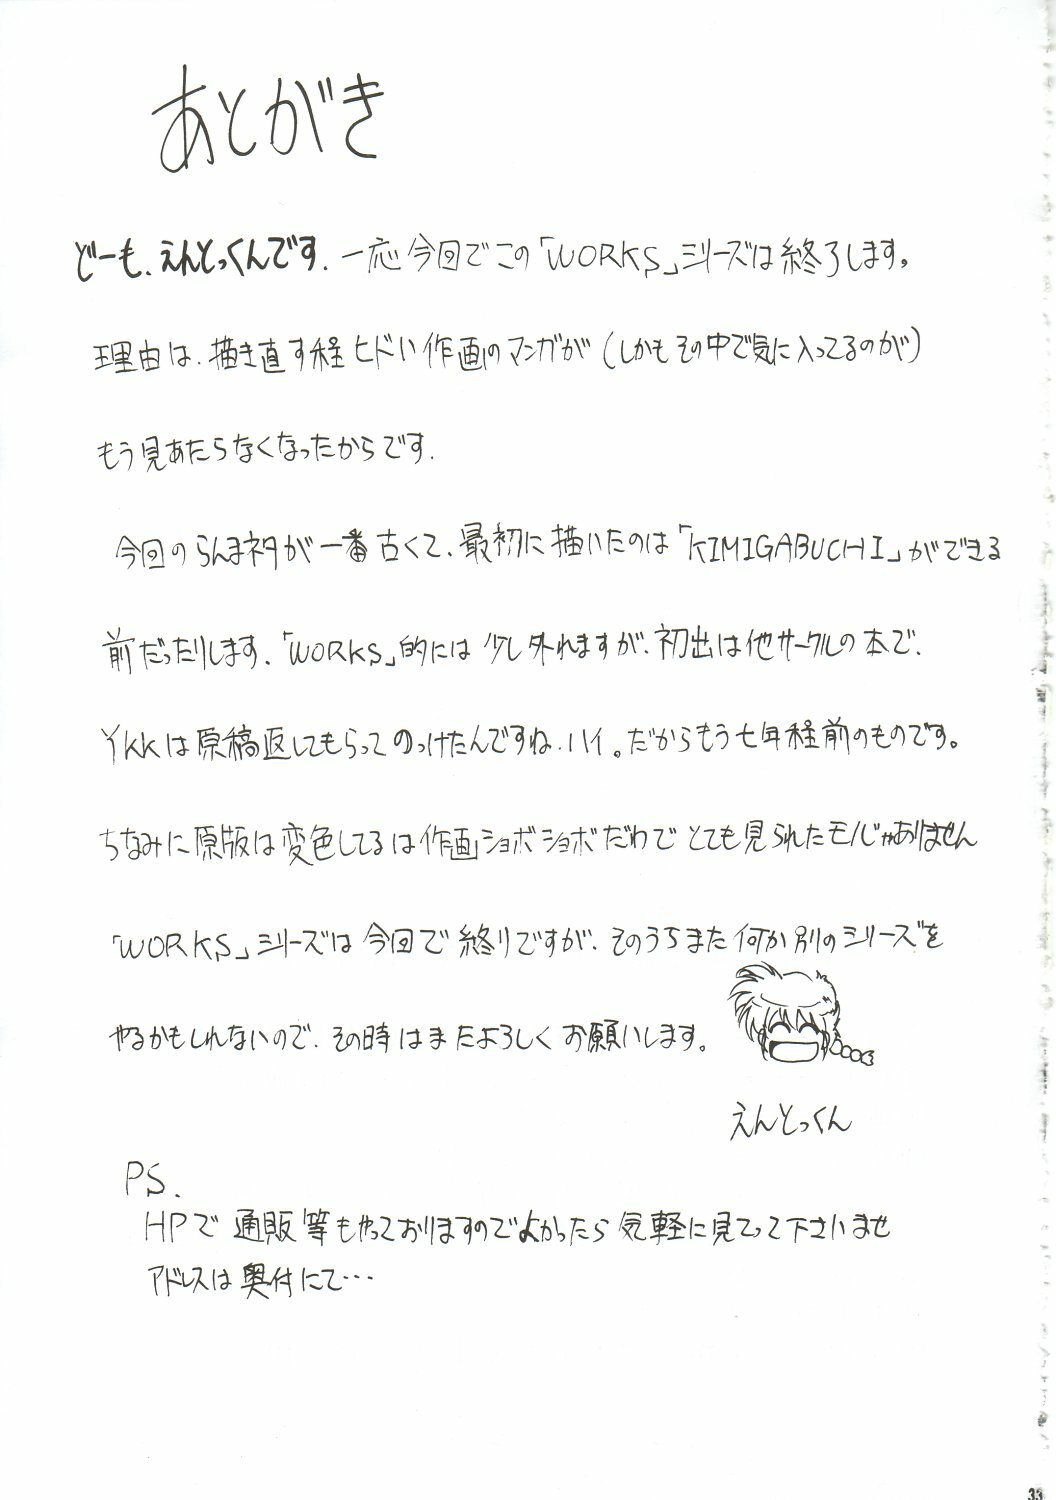 あとがき
どーも、えんとっくんです。一応今回でこの「WORKS」シリーズは終了します。
理由は、描き直す程ヒドい作画のマンガが(しかもその中で気に入ってるのが)
もう見あたらなくなったからです。
今回のらんまネタが一番古くて、最初に描いたのは「KIMIGABUCHI」ができる
前だったりします。「WORKS」的には少し外れますが、初出は他サークルの本で、
YKKは原稿返してもらってのっけたんですね、ハイ。だからもう七年程前のものです。
ちなみに原版は変色してるは作画ショボショボだわでとても見られたモノじゃありません
「WORKS」シリーズは今回で終りですが、そのうちまた何か別のシリーズを
やるかもしれないので、その時はまたよろしくお願いします。
えんとっくん
PS.
HPで通販等もやっておりますのでよかったら気軽に見てって下さいませ
アドレスは奥付にて…
33